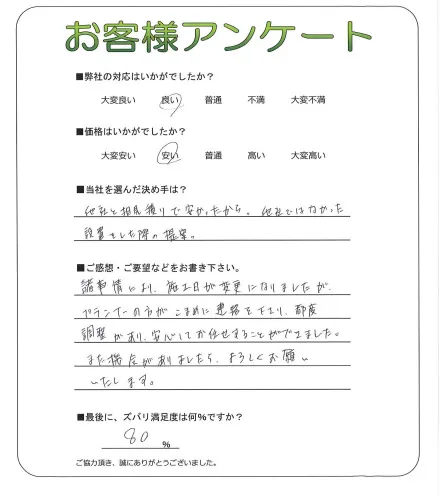 お客様アンケート
■弊社の対応はいかがでしたか？
大変良い 良い 普通 不満 大変不満
■価格はいかがでしたか？
大変安い 安い 普通 高い 大変高い
■当社を選んだ決め手は？
他社と相見積りで安かったから。他社ではなかった
設置をした際の提案。
■ご感想・ご要望などをお書き下さい。
諸事情により、施工日が変更になりましたが、
プランナーの方がこまめに連絡を下さり、都度
調整があり、安心してお任せすることができました。
また機会がありましたら、よろしくお願い
いたします。
■最後に、ズバリ満足度は何%ですか？
80 %
ご協力頂き、誠にありがとうございました。